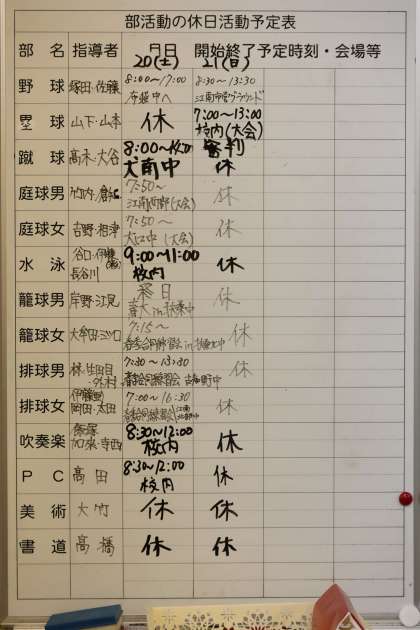 部活動の休日活動予定表
部 名 指導者 月日 開始終了予定時刻・会場等
20(土) 21(日)
野 球 塚田・佐藤 8:00～17:00 8:30～13:30
布袋中へ 江南市営グラウンド
塁 球 山下・山本 休 7:00～13:00
校内(大会)
蹴 球 高木・大谷 8:00～ 審判
犬南中 休
庭球男 竹内・ 7:50～ 休
江南西部(大会)
庭球女 吉野・相津 7:50～ 休
大口中(大会)
水 泳 谷口・伊藤 9:00～11:00 休
長谷川 校内
籠球男 岸野・江見 終日 休
in 扶桑中
籠球女 大牟田・ 7:15～ 休
春季合同練習会 in 扶桑北中
排球男 林・生田目 7:30～13:30 休
外村 春季合同練習会 古知野中
排球女 岡田・太田 7:00～16:30 休
春季合同練習会
吹奏楽 飯塚 8:30～12:00 休
加来・寺西 校内
PC 高田 8:30～12:00 休
校内
美 術 大竹 休 休
書 道 高橋 休 休